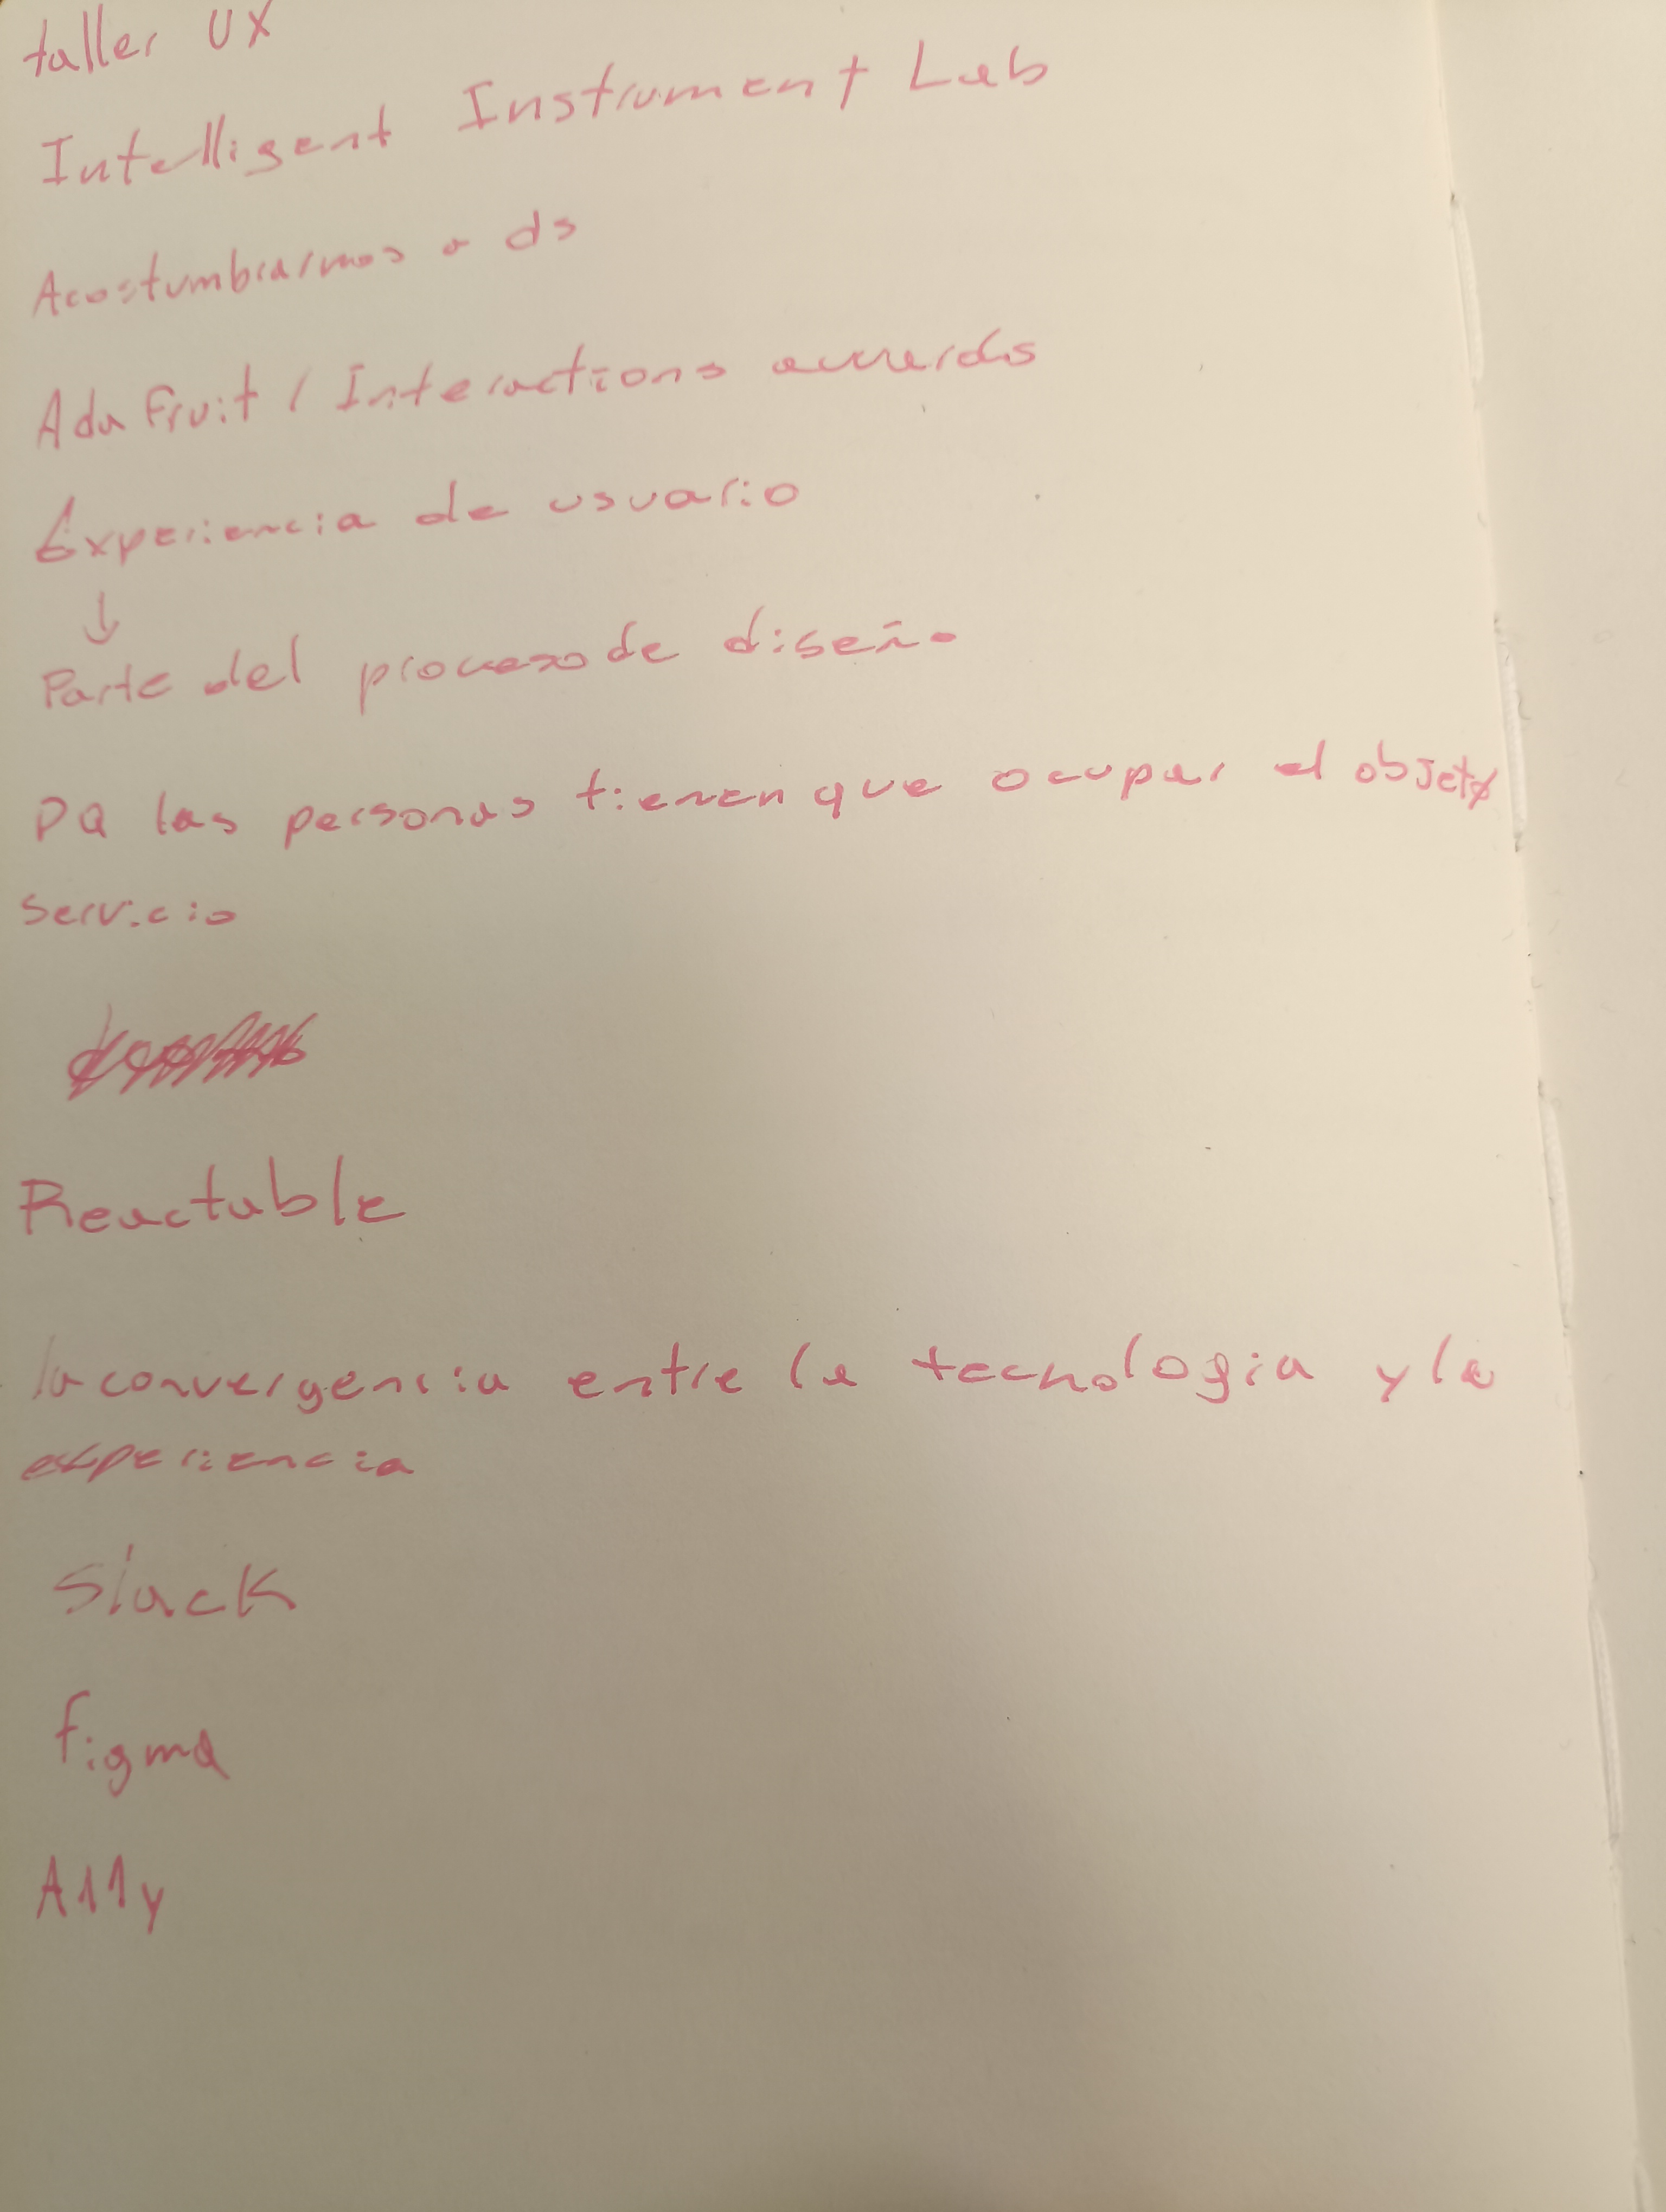 taller UX
Intelligent Instrument Lab
Acostumbrarnos a ds
Adafruit / Interactions awards
Experiencia de usuario
↓
Parte del proceso de diseño
PQ las personas tienen que ocupar el objeto
servicio
Reactable
la convergencia entre la tecnologia y la
experiencia
Slack
figma
A11y